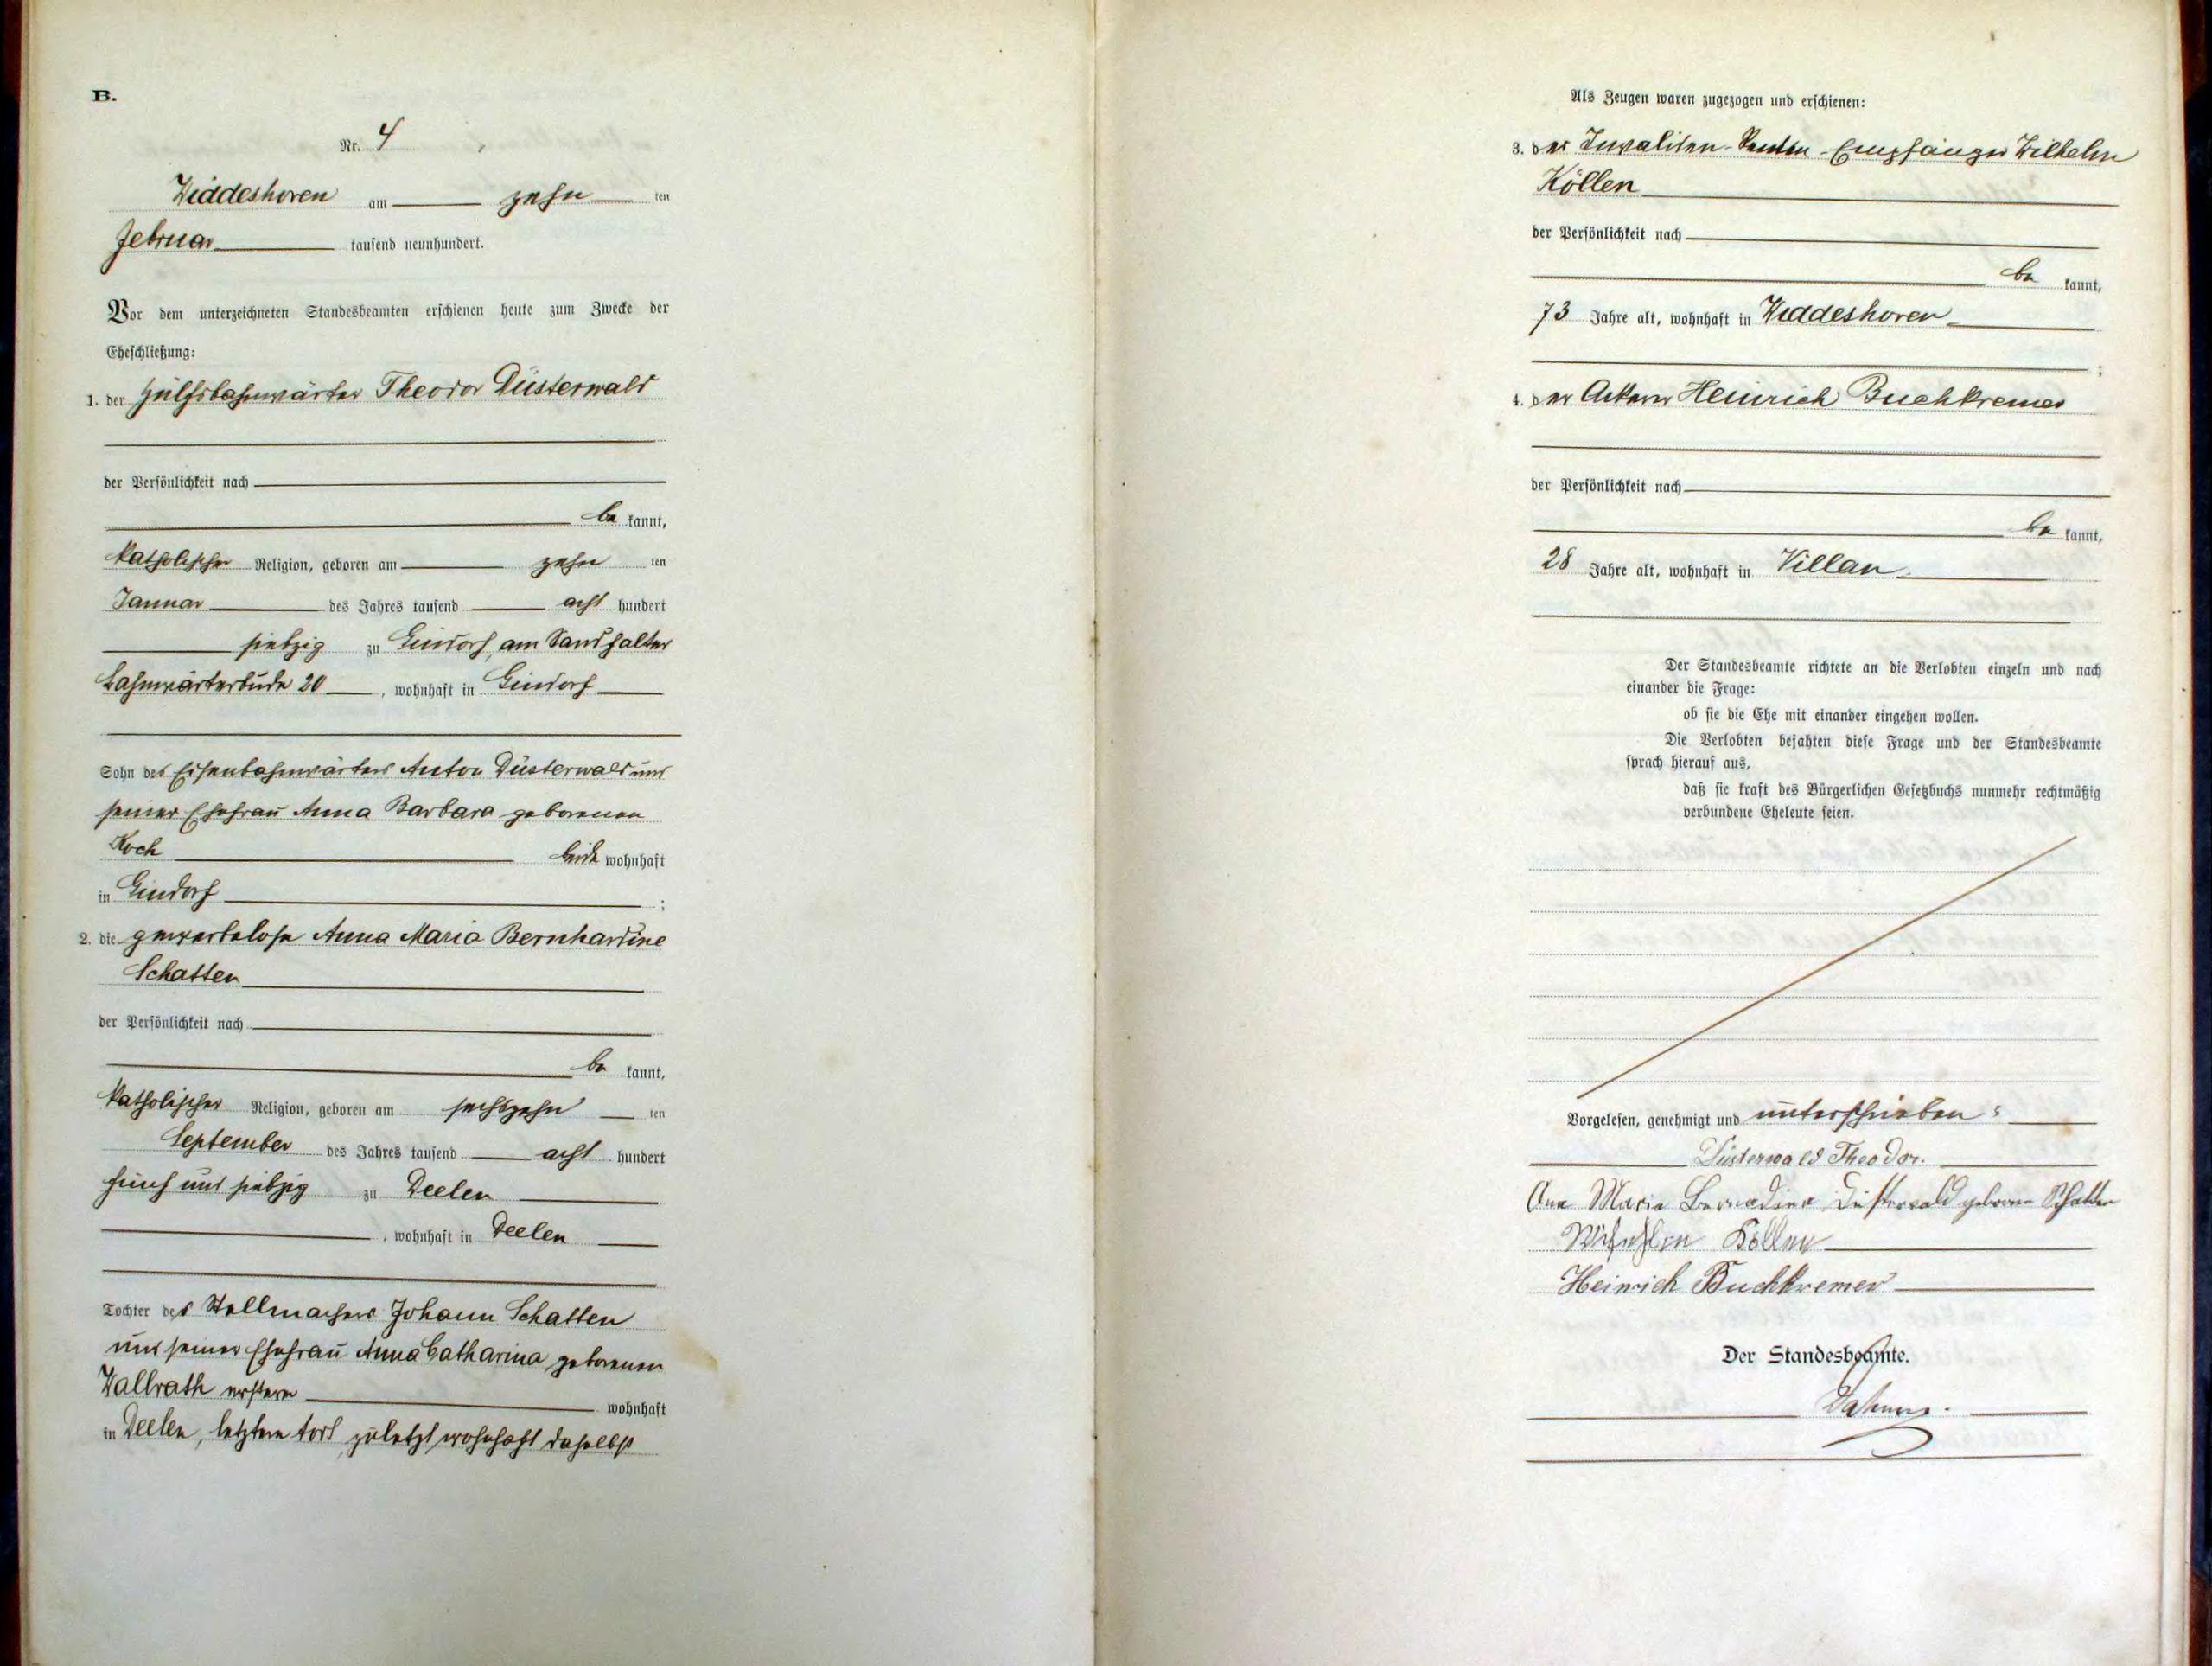 B.
Nr. 4
Widdeshoven am zehn ten
Februar tausend neunhundert.
Vor dem unterzeichneten Standesbeamten erschienen heute zum Zwecke der
Eheschließung:
1. der Hülfsbahnwärter Theodor Düsterwald
der Persönlichkeit nach
be kannt,
katholischer Religion, geboren am zehn ten
Januar des Jahres tausend acht hundert
siebzig zu Gindorf, am Sandhalter
Bahnwärterbude 20, wohnhaft in Gindorf
Sohn des Eisenbahnwärters Anton Düsterwald und
seiner Ehefrau Anna Barbara geborenen
Koch beide wohnhaft
in Gindorf;
2. die gewerbelose Anna Maria Bernhardine
Schatten
der Persönlichkeit nach
be kannt,
katholischer Religion, geboren am sechszehn ten
September des Jahres tausend acht hundert
fünf und siebzig zu Deelen
, wohnhaft in Deelen
Tochter des Stellmachers Johann Schatten
und seiner Ehefrau Anna Catharina geborenen
Wallrath ersterer wohnhaft
in Deelen, letztere todt zuletzt wohnhaft daselbst
Als Zeugen waren zugezogen und erschienen:
3. der Invaliden-Renten-Empfänger Wilhelm
Köllen
der Persönlichkeit nach
be kannt,
73 Jahre alt, wohnhaft in Widdeshoven
;
4. der Ackerer Heinrich Buchkremer
der Persönlichkeit nach
be kannt,
28 Jahre alt, wohnhaft in Villau
Der Standesbeamte richtete an die Verlobten einzeln und nach
einander die Frage:
ob sie die Ehe mit einander eingehen wollen.
Die Verlobten bejahten diese Frage und der Standesbeamte
sprach hierauf aus,
daß sie kraft des Bürgerlichen Gesetzbuchs nunmehr rechtmäßig
verbundene Eheleute seien.
Vorgelesen, genehmigt und unterschrieben:
Düsterwald Theodor.
Ana Maria Bernadine Düsterwald geborene Schatten
Wilhelm Köllen
Heinrich Buchkremer
Der Standesbeamte.